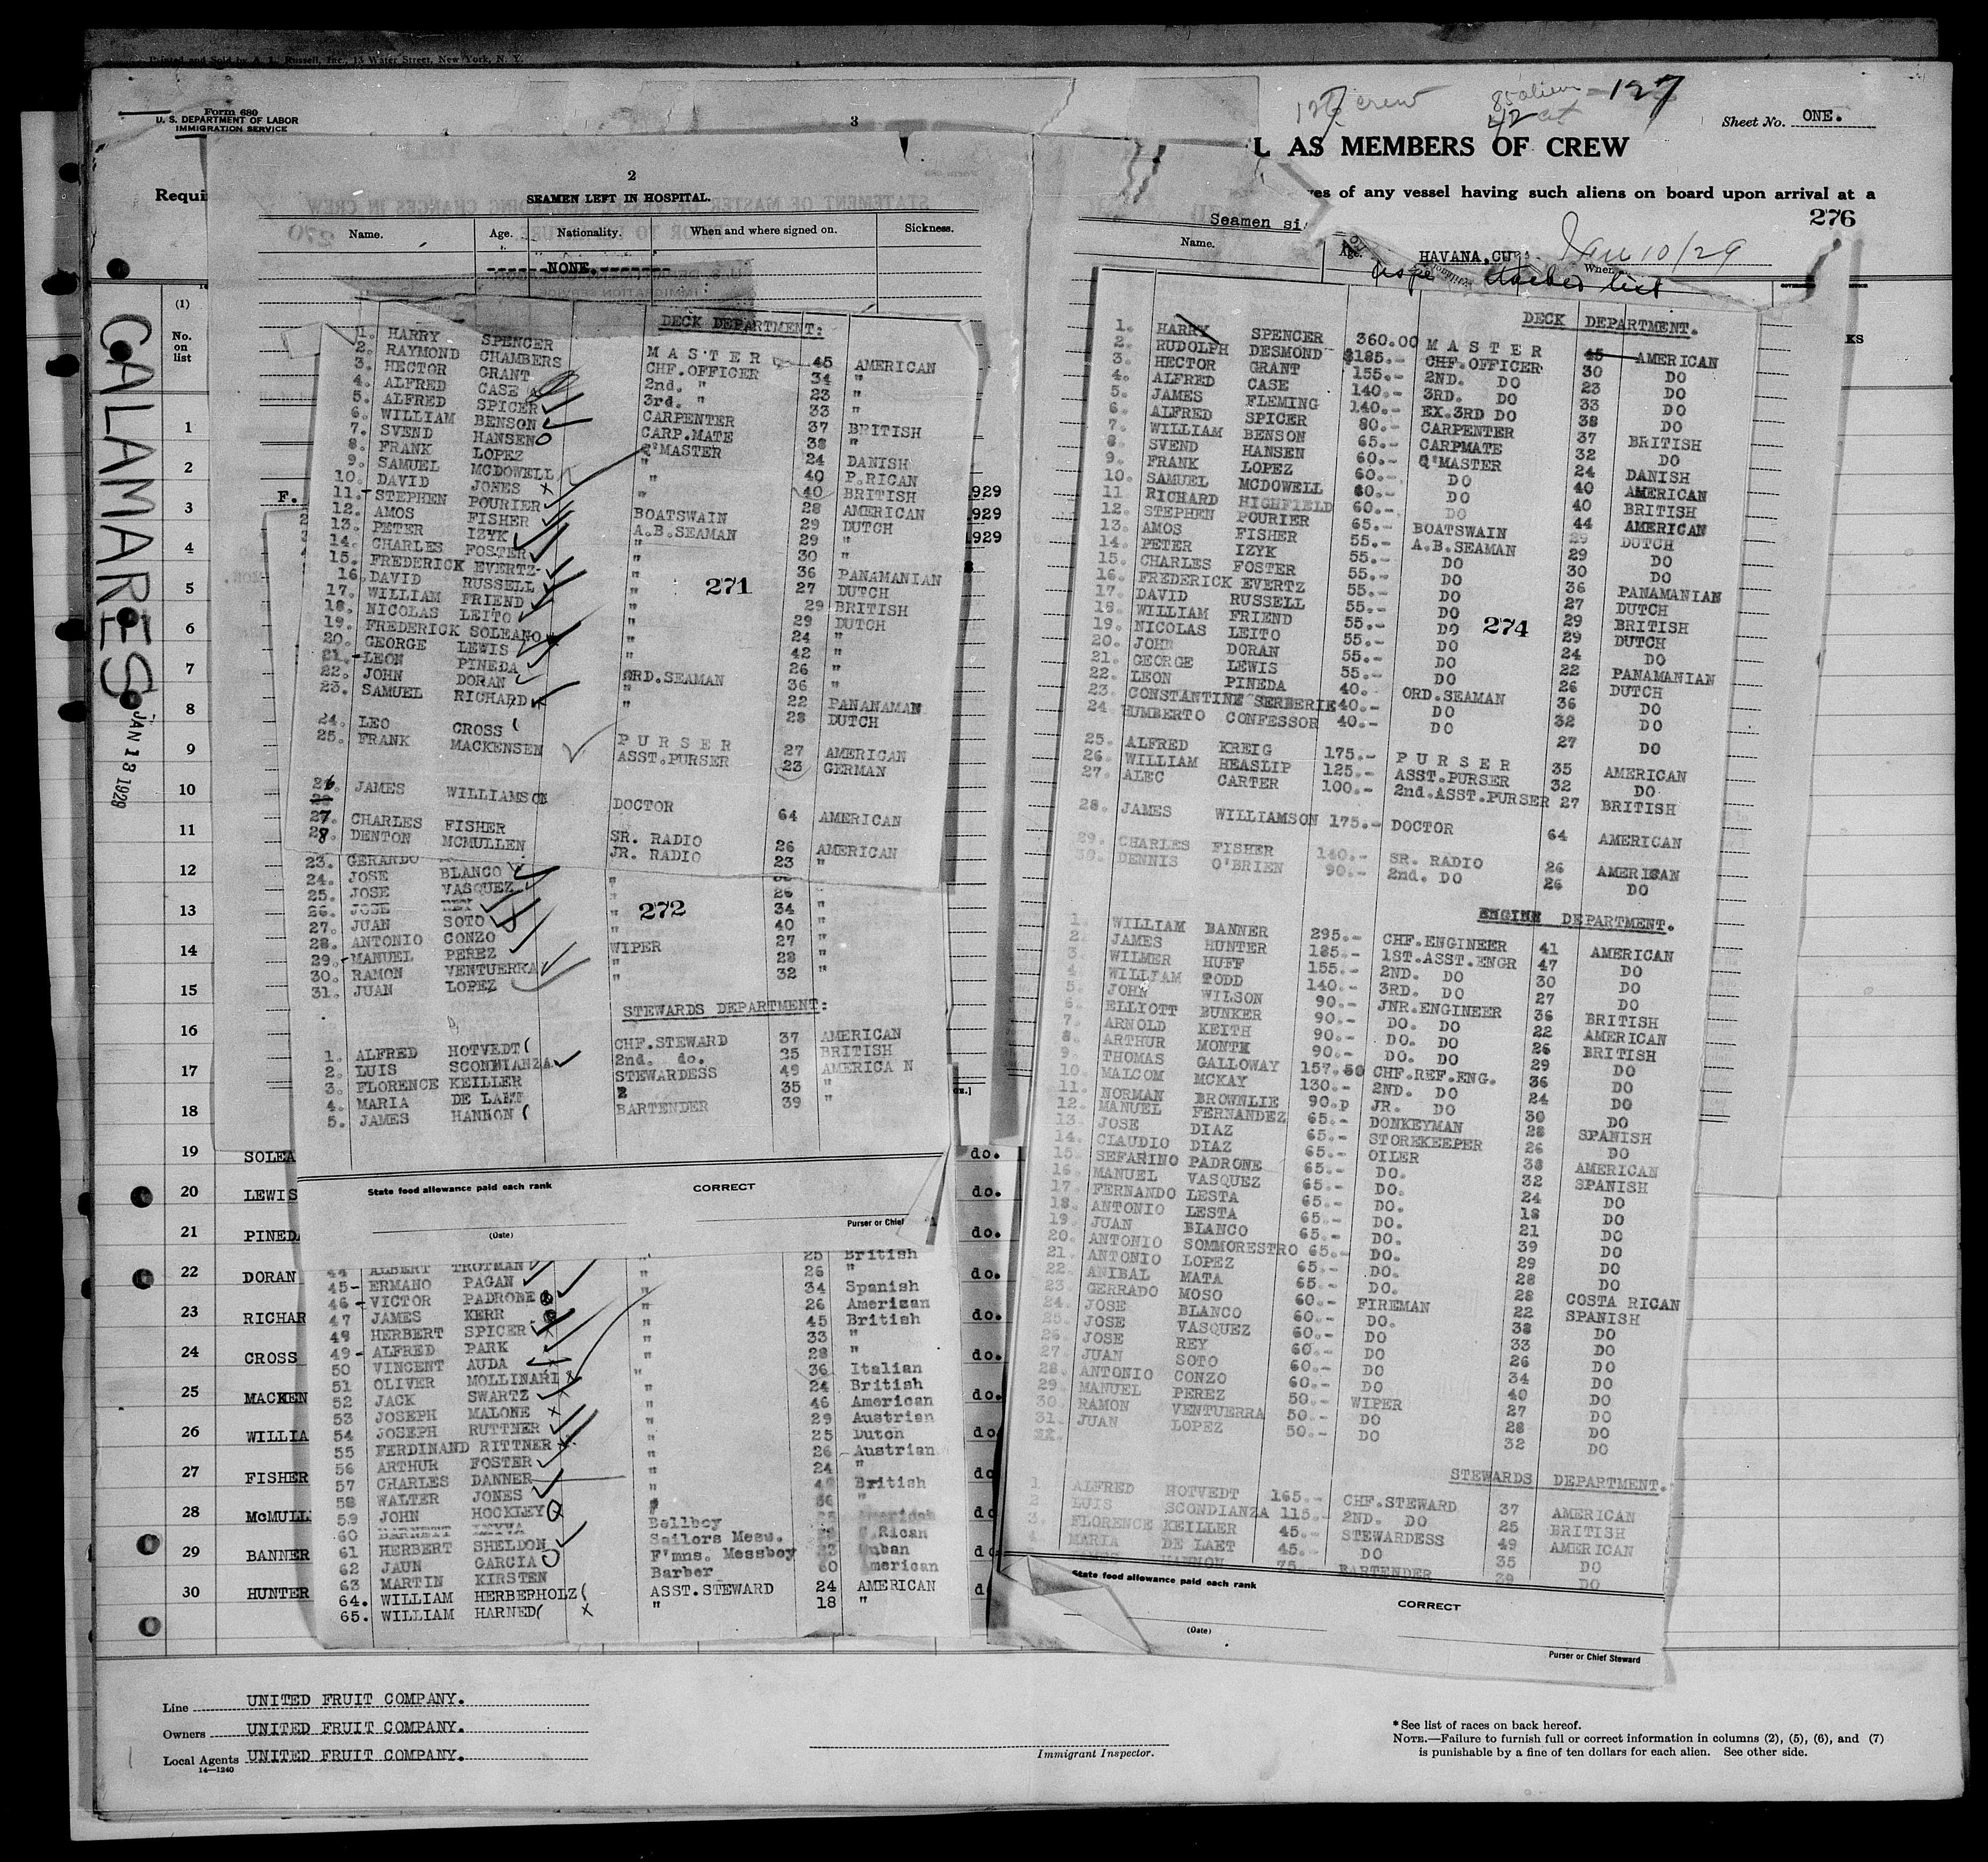 Printed and Sold by A. L. Russell, Inc., 13 Water Street, New York, N. Y.
Form 680
U. S. DEPARTMENT OF LABOR
IMMIGRATION SERVICE
3
127 crew
85 alien
42 cit
127
Sheet No. ONE.
L AS MEMBERS OF CREW
Requi
es of any vessel having such aliens on board upon arrival at a
276
HAVANA, CU
Jan 10/29
CALAMARES
JAN 13 1929
(1)
No. on list
2
SEAMEN LEFT IN HOSPITAL.
Name. Age. Nationality. When and where signed on. Sickness.
NONE.
270
DECK DEPARTMENT:
1. HARRY SPENCER MASTER 45 AMERICAN
2. RAYMOND CHAMBERS CHF.OFFICER 34 "
3. HECTOR GRANT 2nd. " 23 "
4. ALFRED CASE 3rd. " 33 "
5. ALFRED SPICER CARPENTER 37 BRITISH
6. WILLIAM BENSON CARP.MATE 38 "
7. SVEND HANSEN Q'MASTER 24 DANISH
8. FRANK LOPEZ " 40 P.RICAN
9. SAMUEL MCDOWELL " 40 BRITISH
10. DAVID JONES x " 28 AMERICAN
11. STEPHEN POURIER BOATSWAIN 29 DUTCH
12. AMOS FISHER A.B.SEAMAN 29 "
13. PETER IZYK " 30 "
14. CHARLES FOSTER " 36 PANAMANIAN
15. FREDERICK EVERTZ " 27 DUTCH
16. DAVID RUSSELL " 29 BRITISH
17. WILLIAM FRIEND " 29 DUTCH
18. NICOLAS LEITO " 24 "
19. FREDERICK SOLEANO " 42 "
20. GEORGE LEWIS " 26 "
21. LEON PINEDA ORD.SEAMAN 36 "
22. JOHN DORAN " 22 PANANAMAN
23. SAMUEL RICHARD " 28 DUTCH
271
24. LEO CROSS PURSER 27 AMERICAN
25. FRANK MACKENSEN ASST.PURSER 23 GERMAN
26. JAMES WILLIAMSON DOCTOR 64 AMERICAN
27. CHARLES FISHER SR. RADIO 26 AMERICAN
28. DENTON MCMULLEN JR. RADIO 23 "
23. GERARDO
24. JOSE BLANCO "
25. JOSE VASQUEZ " 26 "
26. JOSE REY " 34 "
27. JUAN SOTO " 40 "
28. ANTONIO CONZO " 27 "
29. MANUEL PEREZ WIPER 28 "
30. RAMON VENTUERRA " 32 "
31. JUAN LOPEZ "
272
STEWARDS DEPARTMENT:
1. ALFRED HOTVEDT CHF.STEWARD 37 AMERICAN
2. LUIS SCONDIANZA 2nd. do. 25 BRITISH
3. FLORENCE KEILLER STEWARDESS 49 AMERICAN
4. MARIA DE LAET 2 35 "
5. JAMES HANNON BARTENDER 39 "
State food allowance paid each rank
CORRECT
(Date)
Purser or Chief
44 ALBERT TROTMAN " 25 British
45- ERMANO PAGAN " 26 "
46- VICTOR PADRONE " 34 Spanish
47 JAMES KERR " 26 American
48 HERBERT SPICER " 45 British
49- ALFRED PARK " 33 "
50 VINCENT AUDA " 28 "
51 OLIVER MOLLINARI " 36 Italian
52 JACK SWARTZ " 24 British
53 JOSEPH MALONE " 46 American
54 JOSEPH RUTTNER " 29 Austrian
55 FERDINAND RITTNER " 25 Dutch
56 ARTHUR FOSTER " 26 Austrian
57 CHARLES DANNER " 24 "
58 WALTER JONES British
59 JOHN HOCKLEY "
60 BARNETT Bellboy
61 HERBERT SHELDON Sailors Mess. Rican
62 JAUN GARCIA F'mns. Messboy 23 Cuban
63 MARTIN KIRSTEN Barber 60 American
64. WILLIAM HERBERHOLZ ASST.STEWARD 24 AMERICAN
65. WILLIAM HARNED x " 18 "
Seamen si
Name. Age. When
as per attached list
DECK DEPARTMENT.
1. HARRY SPENCER 360.00 MASTER 45 AMERICAN
2. RUDOLPH DESMOND $185.- CHF.OFFICER 30 DO
3. HECTOR GRANT 155.- 2ND. DO 23 DO
4. ALFRED CASE 140.- 3RD. DO 33 DO
5. JAMES FLEMING 140.- EX.3RD DO 38 DO
6. ALFRED SPICER 80.- CARPENTER 37 BRITISH
7. WILLIAM BENSON 65.- CARPMATE 32 DO
8. SVEND HANSEN 60.- Q'MASTER 24 DANISH
9. FRANK LOPEZ 60.- DO 40 AMERICAN
10. SAMUEL MCDOWELL 60.- DO 40 BRITISH
11 RICHARD HIGHFIELD 60.- DO 44 AMERICAN
12. STEPHEN POURIER 65.- BOATSWAIN 29 DUTCH
13. AMOS FISHER 55.- A.B.SEAMAN 29 DO
14. PETER IZYK 55.- DO 30 DO
15. CHARLES FOSTER 55.- DO 36 PANAMANIAN
16. FREDERICK EVERTZ 55.- DO 27 DUTCH
17. DAVID RUSSELL 55.- DO 29 BRITISH
18. WILLIAM FRIEND 55.- DO 29 DUTCH
19. NICOLAS LEITO 55.- DO 24 DO
20. JOHN DORAN 55.- DO 22 PANAMANIAN
21. GEORGE LEWIS 55.- DO 26 DUTCH
22. LEON PINEDA 40.- ORD.SEAMAN 36 DO
23. CONSTANTINE SERBERIE 40.- DO 32 DO
24 HUMBERTO CONFESSOR 40.- DO 27 DO
274
25. ALFRED KREIG 175.- PURSER 35 AMERICAN
26. WILLIAM HEASLIP 125.- ASST.PURSER 32 DO
27. ALEC CARTER 100.- 2nd.ASST.PURSER 27 BRITISH
28. JAMES WILLIAMSON 175.- DOCTOR 64 AMERICAN
29. CHARLES FISHER 140.- SR. RADIO 26 AMERICAN
30. DENNIS O'BRIEN 90.- 2nd. DO 26 DO
ENGINE DEPARTMENT.
1. WILLIAM BANNER 295.- CHF.ENGINEER 41 AMERICAN
2. JAMES HUNTER 185.- 1ST.ASST.ENGR 47 DO
3. WILMER HUFF 155.- 2ND. DO 30 DO
4. WILLIAM TODD 140.- 3RD. DO 27 DO
5. JOHN WILSON 90.- JNR.ENGINEER 36 BRITISH
6. ELLIYOTT BUNKER 90.- DO. DO 22 AMERICAN
7. ARNOLD KEITH 90.- DO. DO 26 BRITISH
8. ARTHUR MONTK 90.- DO. DO 29 DO
9. THOMAS GALLOWAY 157.50 CHF.REF.ENG. 36 DO
10. MALCOM MCKAY 130.- 2ND. DO 24 DO
11. NORMAN BROWNLIE 90.p JR. DO 30 DO
12. MANUEL FERNANDEZ 65.- DONKEYMAN 28 SPANISH
13. JOSE DIAZ 65.- STOREKEEPER 26 DO
14. CLAUDIO DIAZ 65.- OILER 38 AMERICAN
15. SEFARINO PADRONE 65.- DO. 32 SPANISH
16. MANUEL VASQUEZ 65.- DO. 24 DO
17. FERNANDO LESTA 65.- DO. 18 DO
18. ANTONIO LESTA 65.- DO. 21 DO
19. JUAN BLANCO 65.- DO. 39 DO
20. ANTONIO SOMMORESTRO 65.- DO. 29 DO
21. ANTONIO LOPEZ 65.- DO. 28 DO
22. ANIBAL MATA 65.- DO. 28 COSTA RICAN
23. GERRADO MOSO 60.- FIREMAN 22 SPANISH
24. JOSE BLANCO 60.- DO. 38 DO
25. JOSE VASQUEZ 60.- DO 33 DO
26. JOSE REY 60.- DO 26 DO
27. JUAN SOTO 60.- DO 34 DO
28. ANTONIO CONZO 60.- DO 40 DO
29. MANUEL PEREZ 50.- WIPER 27 DO
30. RAMON VENTUERRA 50.- DO 28 DO
31. JUAN LOPEZ 50.- DO 32 DO
STEWARDS DEPARTMENT.
1 ALFRED HOTVEDT 165.- CHF.STEWARD 37 AMERICAN
2 LUIS SCONDIANZA 115.- 2ND. DO 25 BRITISH
3. FLORENCE KEILLER 45.- STEWARDESS 49 AMERICAN
4. MARIA DE LAET 45.- DO 35 DO
HANNON 75 BARTENDER 39 DO
State food allowance paid each rank
CORRECT
(Date)
Purser or Chief Steward
KS
1
2
3
4
5
6
7
8
9
10
11
12
13
14
15
16
17
18
19 SOLEA do.
20 LEWIS do.
21 PINEDA do.
22 DORAN do.
23 RICHAR do.
24 CROSS do.
25 MACKEN do.
26 WILLIA do
27 FISHER do
28 McMULL d
29 BANNER d
30 HUNTER d
F.
929
929
1929
Line UNITED FRUIT COMPANY.
Owners UNITED FRUIT COMPANY.
Local Agents UNITED FRUIT COMPANY.
14—1240
Immigrant Inspector.
*See list of races on back hereof.
NOTE.—Failure to furnish full or correct information in columns (2), (5), (6), and (7)
is punishable by a fine of ten dollars for each alien. See other side.